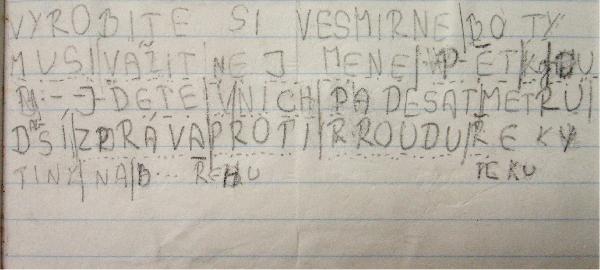 VYROBITE SI VESMIRNE BOTY
MUSI VAŽIT NEJ MENE PĚTKOU
DETE VNICH PADESAT METRU
DSÍ ZPRÁVA PROTI PROUDU ŘEKY
TINY NAD ŘEKU ŘEKU